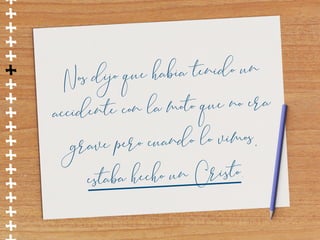 Nos dijo que había tenido un
accidente con la moto que no era
grave pero cuando lo vimos,
estaba hecho un Cristo